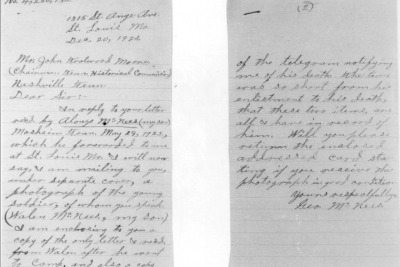 1218 St. Ange Ave.
St. Louis Mo.
Dec. 20, 1922
Mr. John Trotwood Moore
(Chairman Tenn Historical Committee)
Nashville Tenn.
Dear Sir:-
In reply to your letter
recd by Alonzo McNees (my son)
Mosheim Tenn. May 29, 1922,
which he forwarded to me
at St. Louis Mo. I will now
say, I am mailing to you
under separate cover, a
photograph of the young
soldier, of whom you speak
(Walen McNees, my son)
I am enclosing to you a
copy of the only letter I recd
from Walen after he went
to Camp, and also a copy
(2)
of the telegram notifying
me of his death. The time
was so short from his
enlistment to his death,
that these two items, are
all I have in record of
him. Will you please
return the enclosed
addressed card sta-
ting if you receive the
photograph in good condition
Yours respectfully
Geo McNees